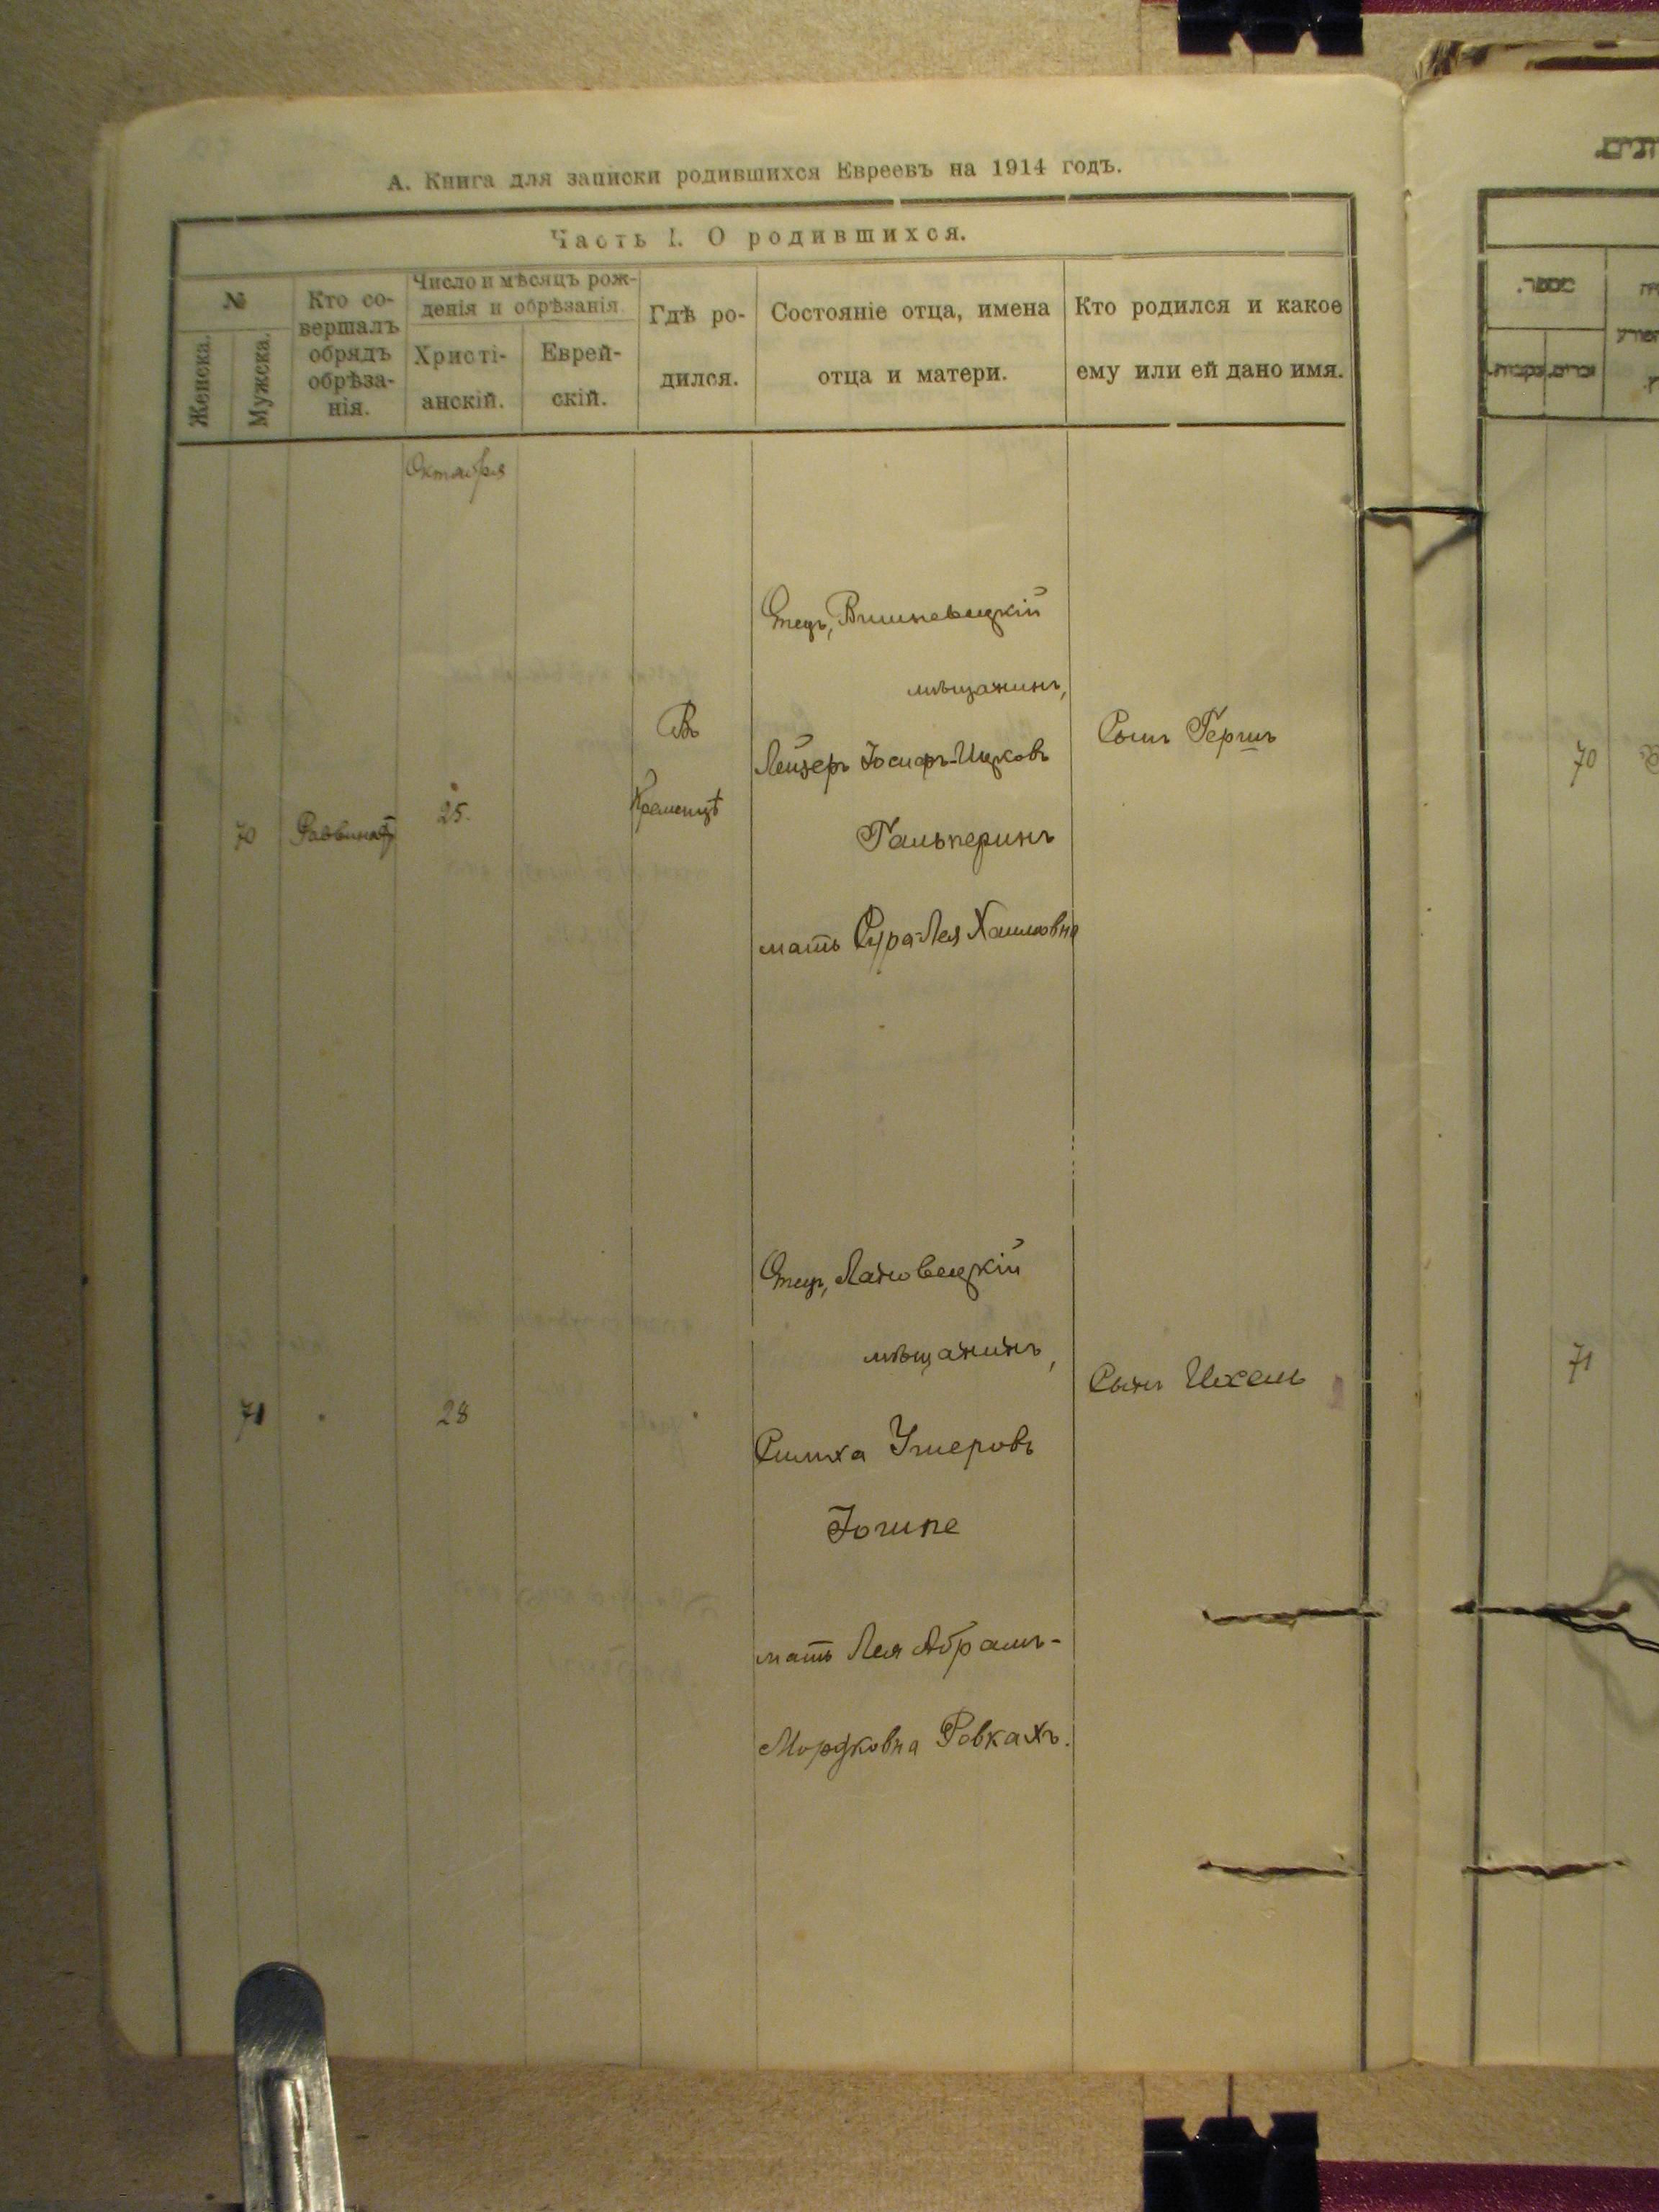 А. Книга для записки родившихся Евреевъ на 1914 годъ.
Часть I. О родившихся.
№
Женска.
Мужска.
Кто со-
вершалъ
обрядъ
обрѣза-
нія.
Число и мѣсяцъ рож-
денія и обрѣзанія
Христі-
анскій.
Еврей-
скій.
Гдѣ ро-
дился.
Состояніе отца, имена
отца и матери.
Кто родился и какое
ему или ей дано имя.
Октября
70
25.
Въ
Кременцѣ
Отецъ, Вишневецкій
мѣщанинъ,
Лейзеръ Іосифъ-Ицковъ
Гальперинъ
мать Сура-Лея Хаимовна
Сынъ Гершъ
71
28
Отецъ, Лановецкій
мѣщанинъ,
Симха Ушеровъ
мать Лея Абрамъ-
Мордковна
Сынъ Ихель
מספר.
זכרים.
נקבות.
70
71